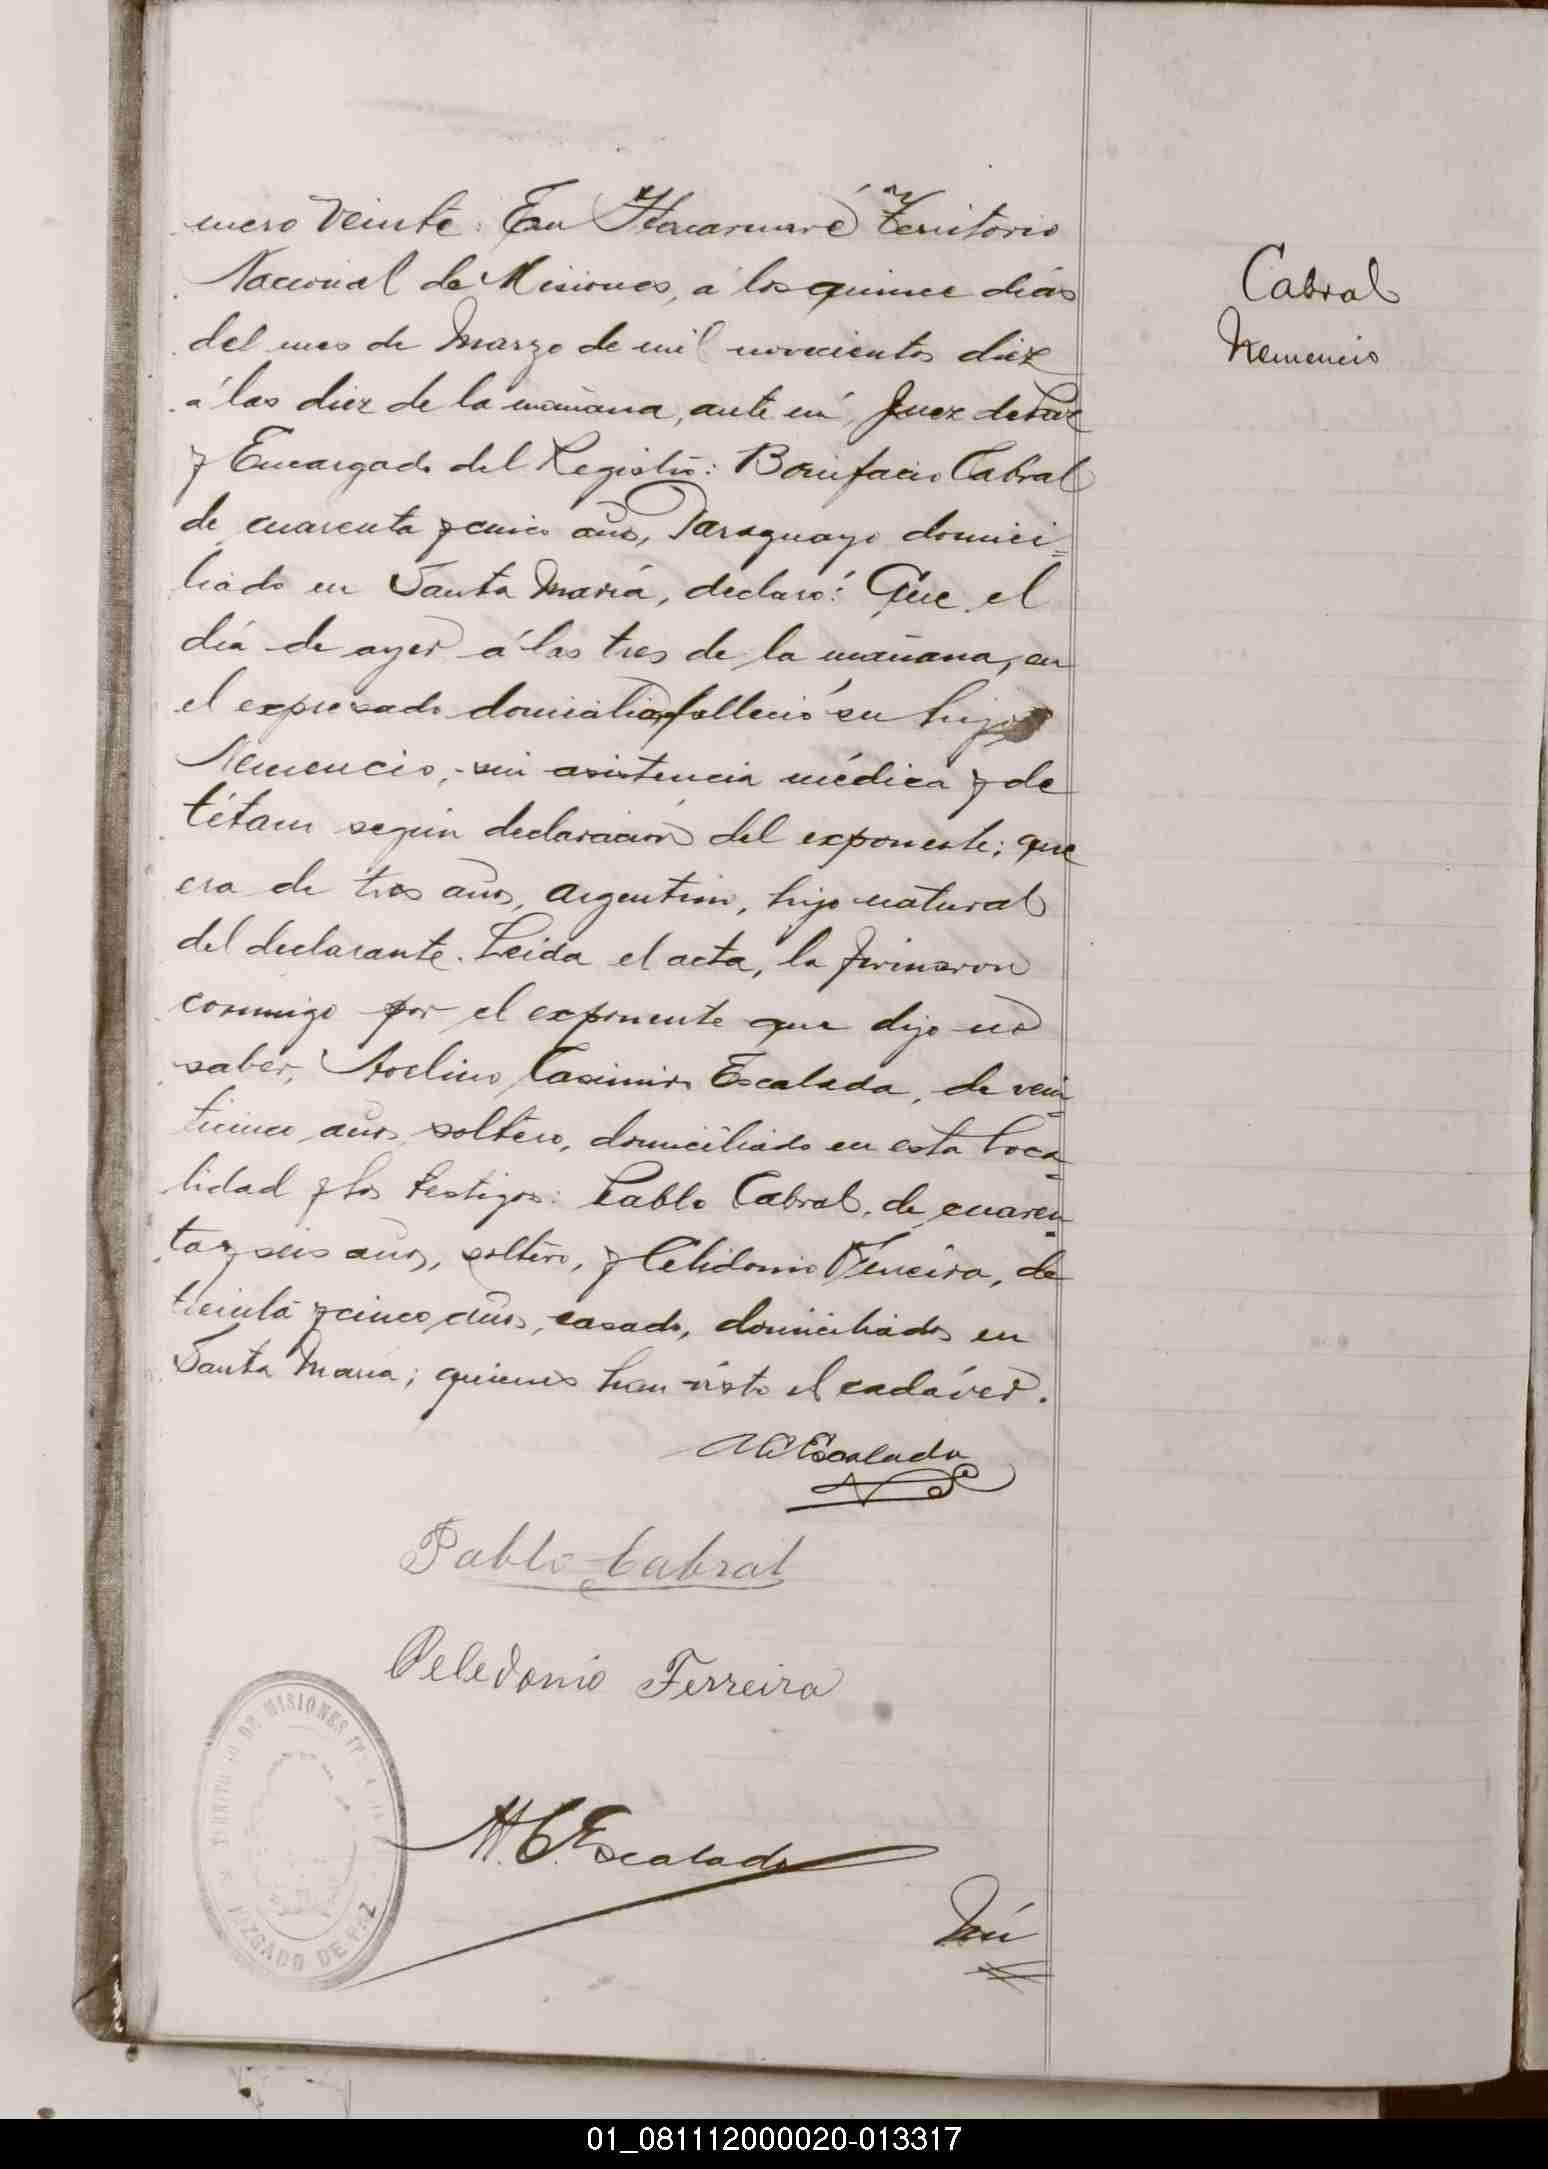 mero Veinte: En Itacaruaré Territorio
Nacional de Misiones, á los quince dias
del mes de Marzo de mil novecientos diez
á las diez de la mañana, ante mí, Juez de Paz
y Encargado del Registro: Bonifacio Cabral
de cuarenta y cinco años, Paraguayo domici=
liado en Santa María, declaró: Que el
día de ayer á las tres de la mañana, en
el expresado domicilio, falleció su hijo
Nemencio, sin asistencia médica y de
tétam según declaración del exponente; que
era de tres años, argentino, hijo natural
del declarante. Leida el acta, la firmaron
conmigo por el exponente que dijo no
saber, Avelino Casimiro Escalada, de vein=
ticinco años soltero, domiciliado en esta loca=
lidad y los testigos: Pablo Cabral, de cuaren=
ta y seis años, soltero, y Celidonio Ferreira, de
treinta y cinco años, casado, domiciliados en
Santa María; quienes han visto el cadáver.
Cabral
Nemencio
A C Escalada
Pablo Cabral
Celedonio Ferreira
TERRITORIO DE MISIONES
JUZGADO DE PAZ
M. C. Escalada
Nú
01_081112000020-013317